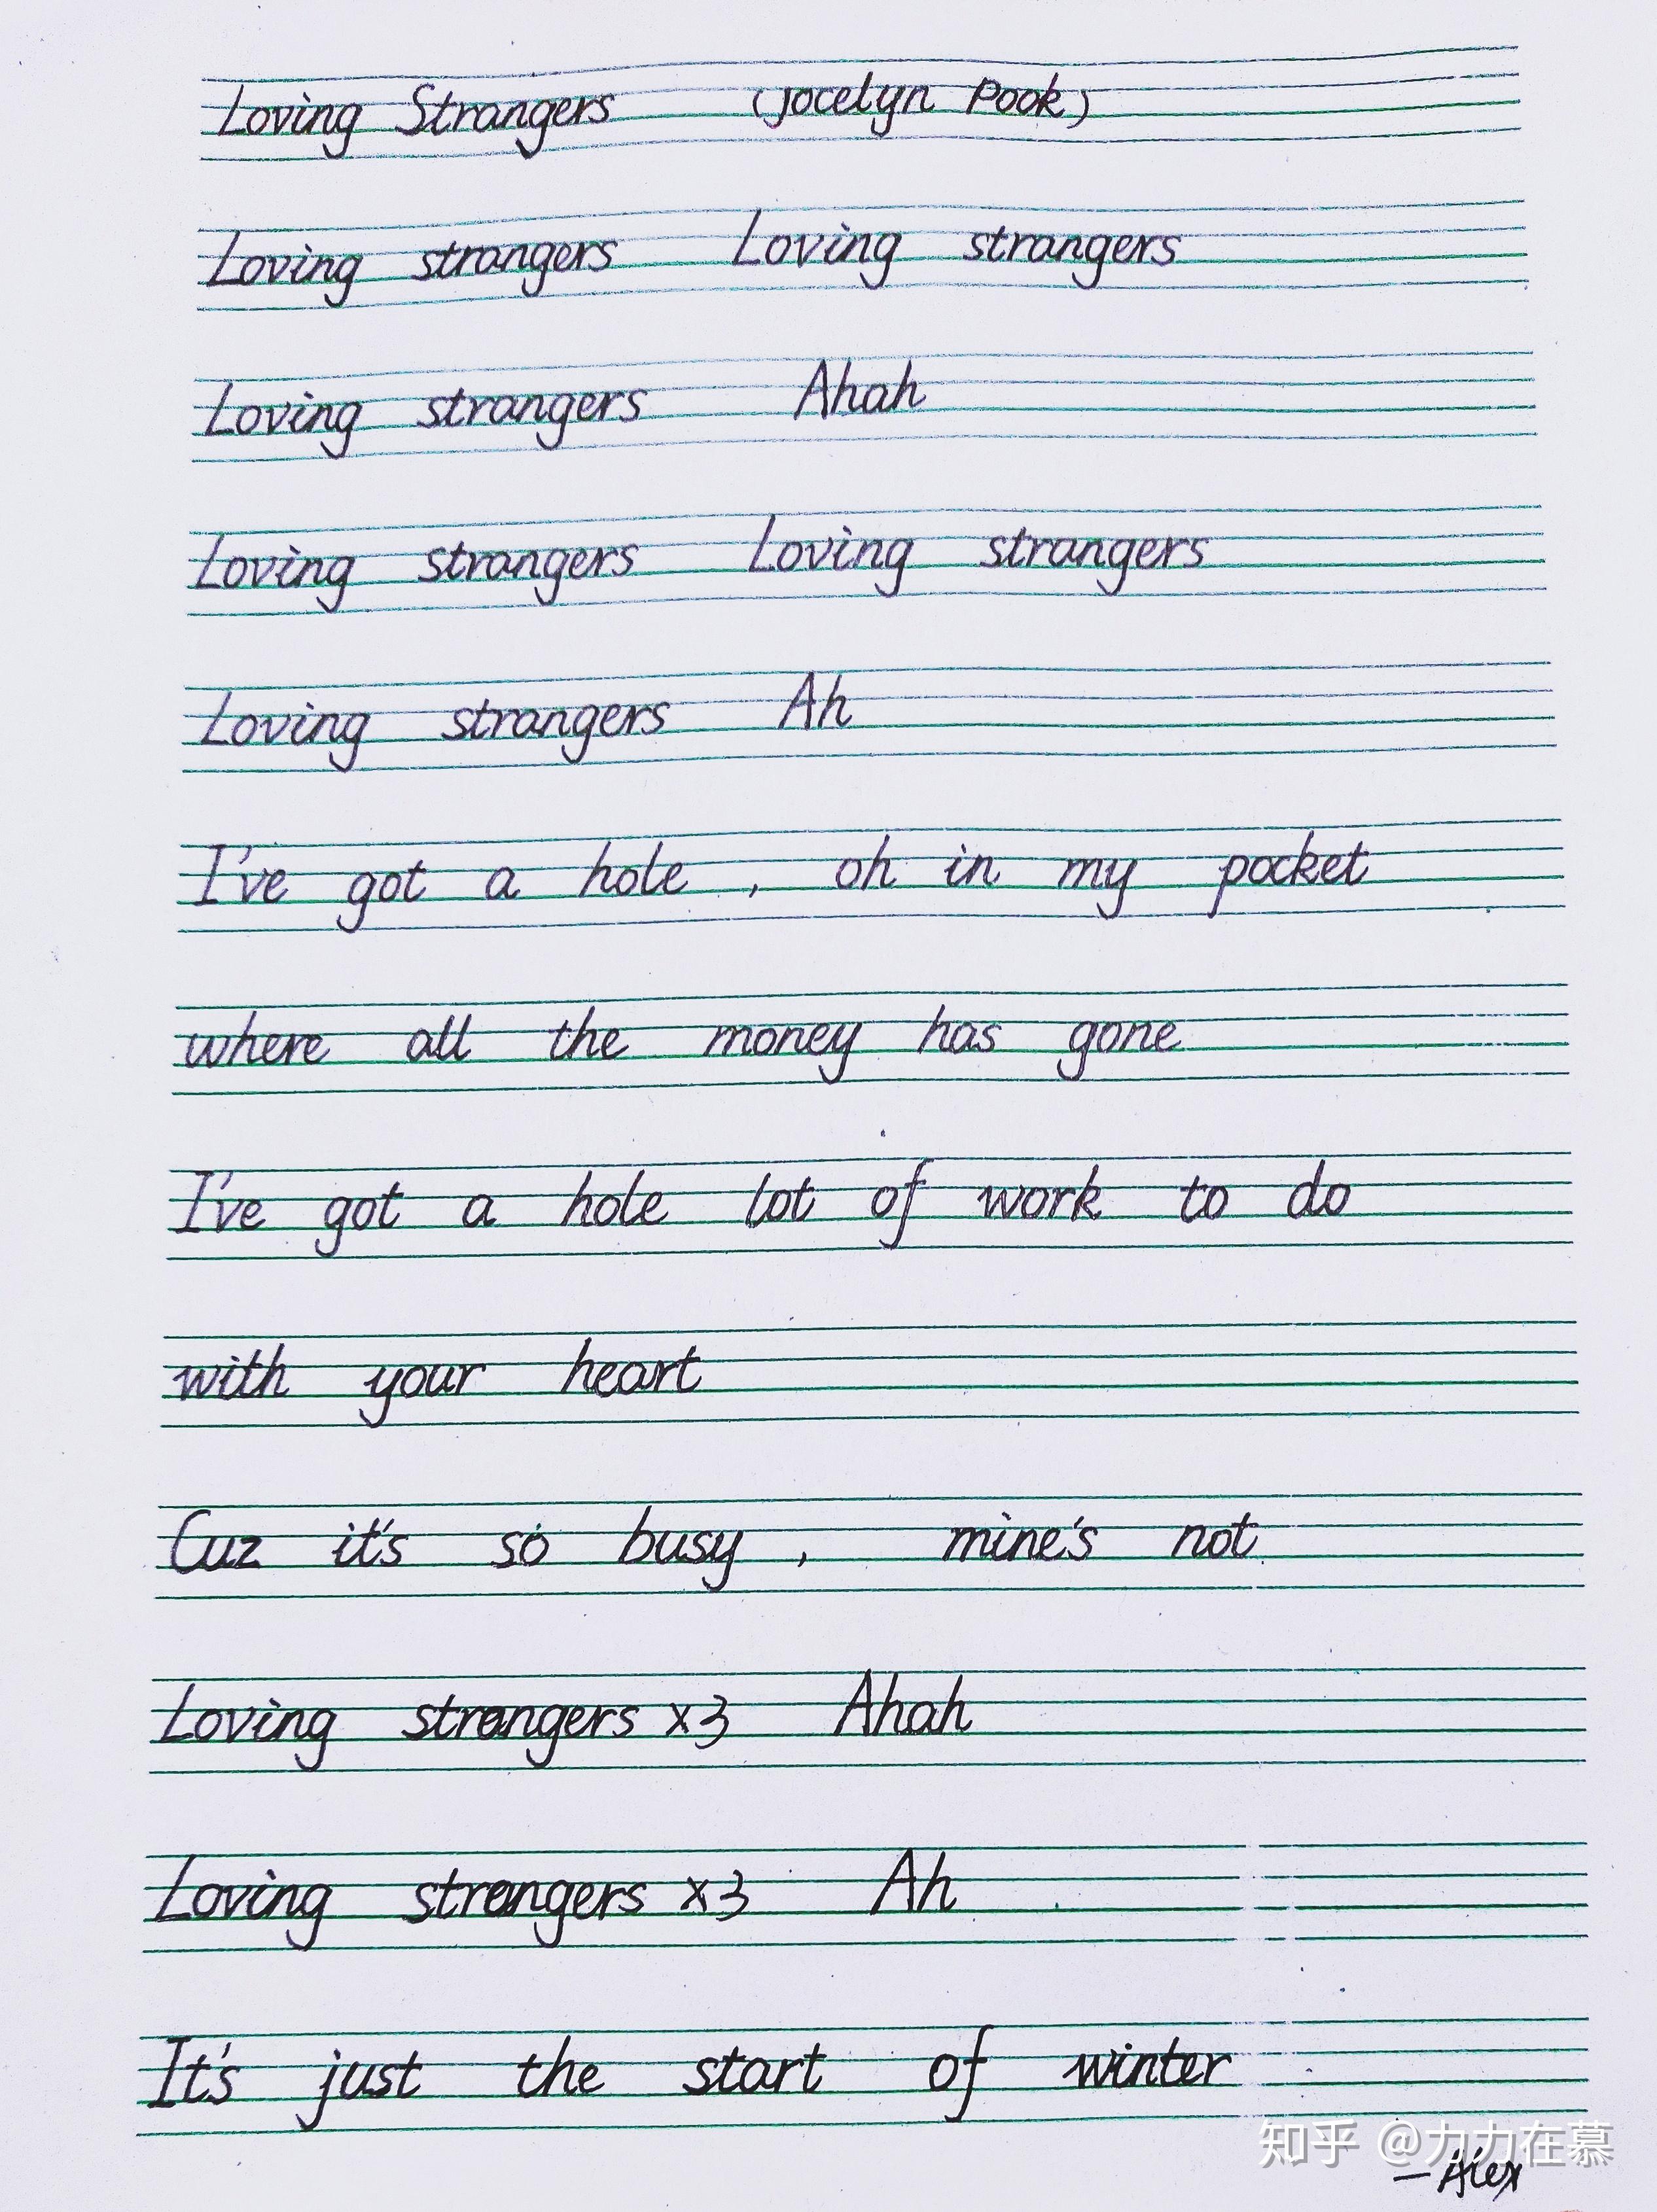 Loving Strangers (Jocelyn Pook)
Loving strangers Loving strangers
Loving strangers Ahah
Loving strangers Loving strangers
Loving strangers Ah
I've got a hole , oh in my pocket
where all the money has gone
I've got a hole lot of work to do
with your heart
Cuz it's so busy , mine's not
Loving strangers ×3 Ahah
Loving strangers ×3 Ah
It's just the start of winter
知乎 @力力在慕
— Alex